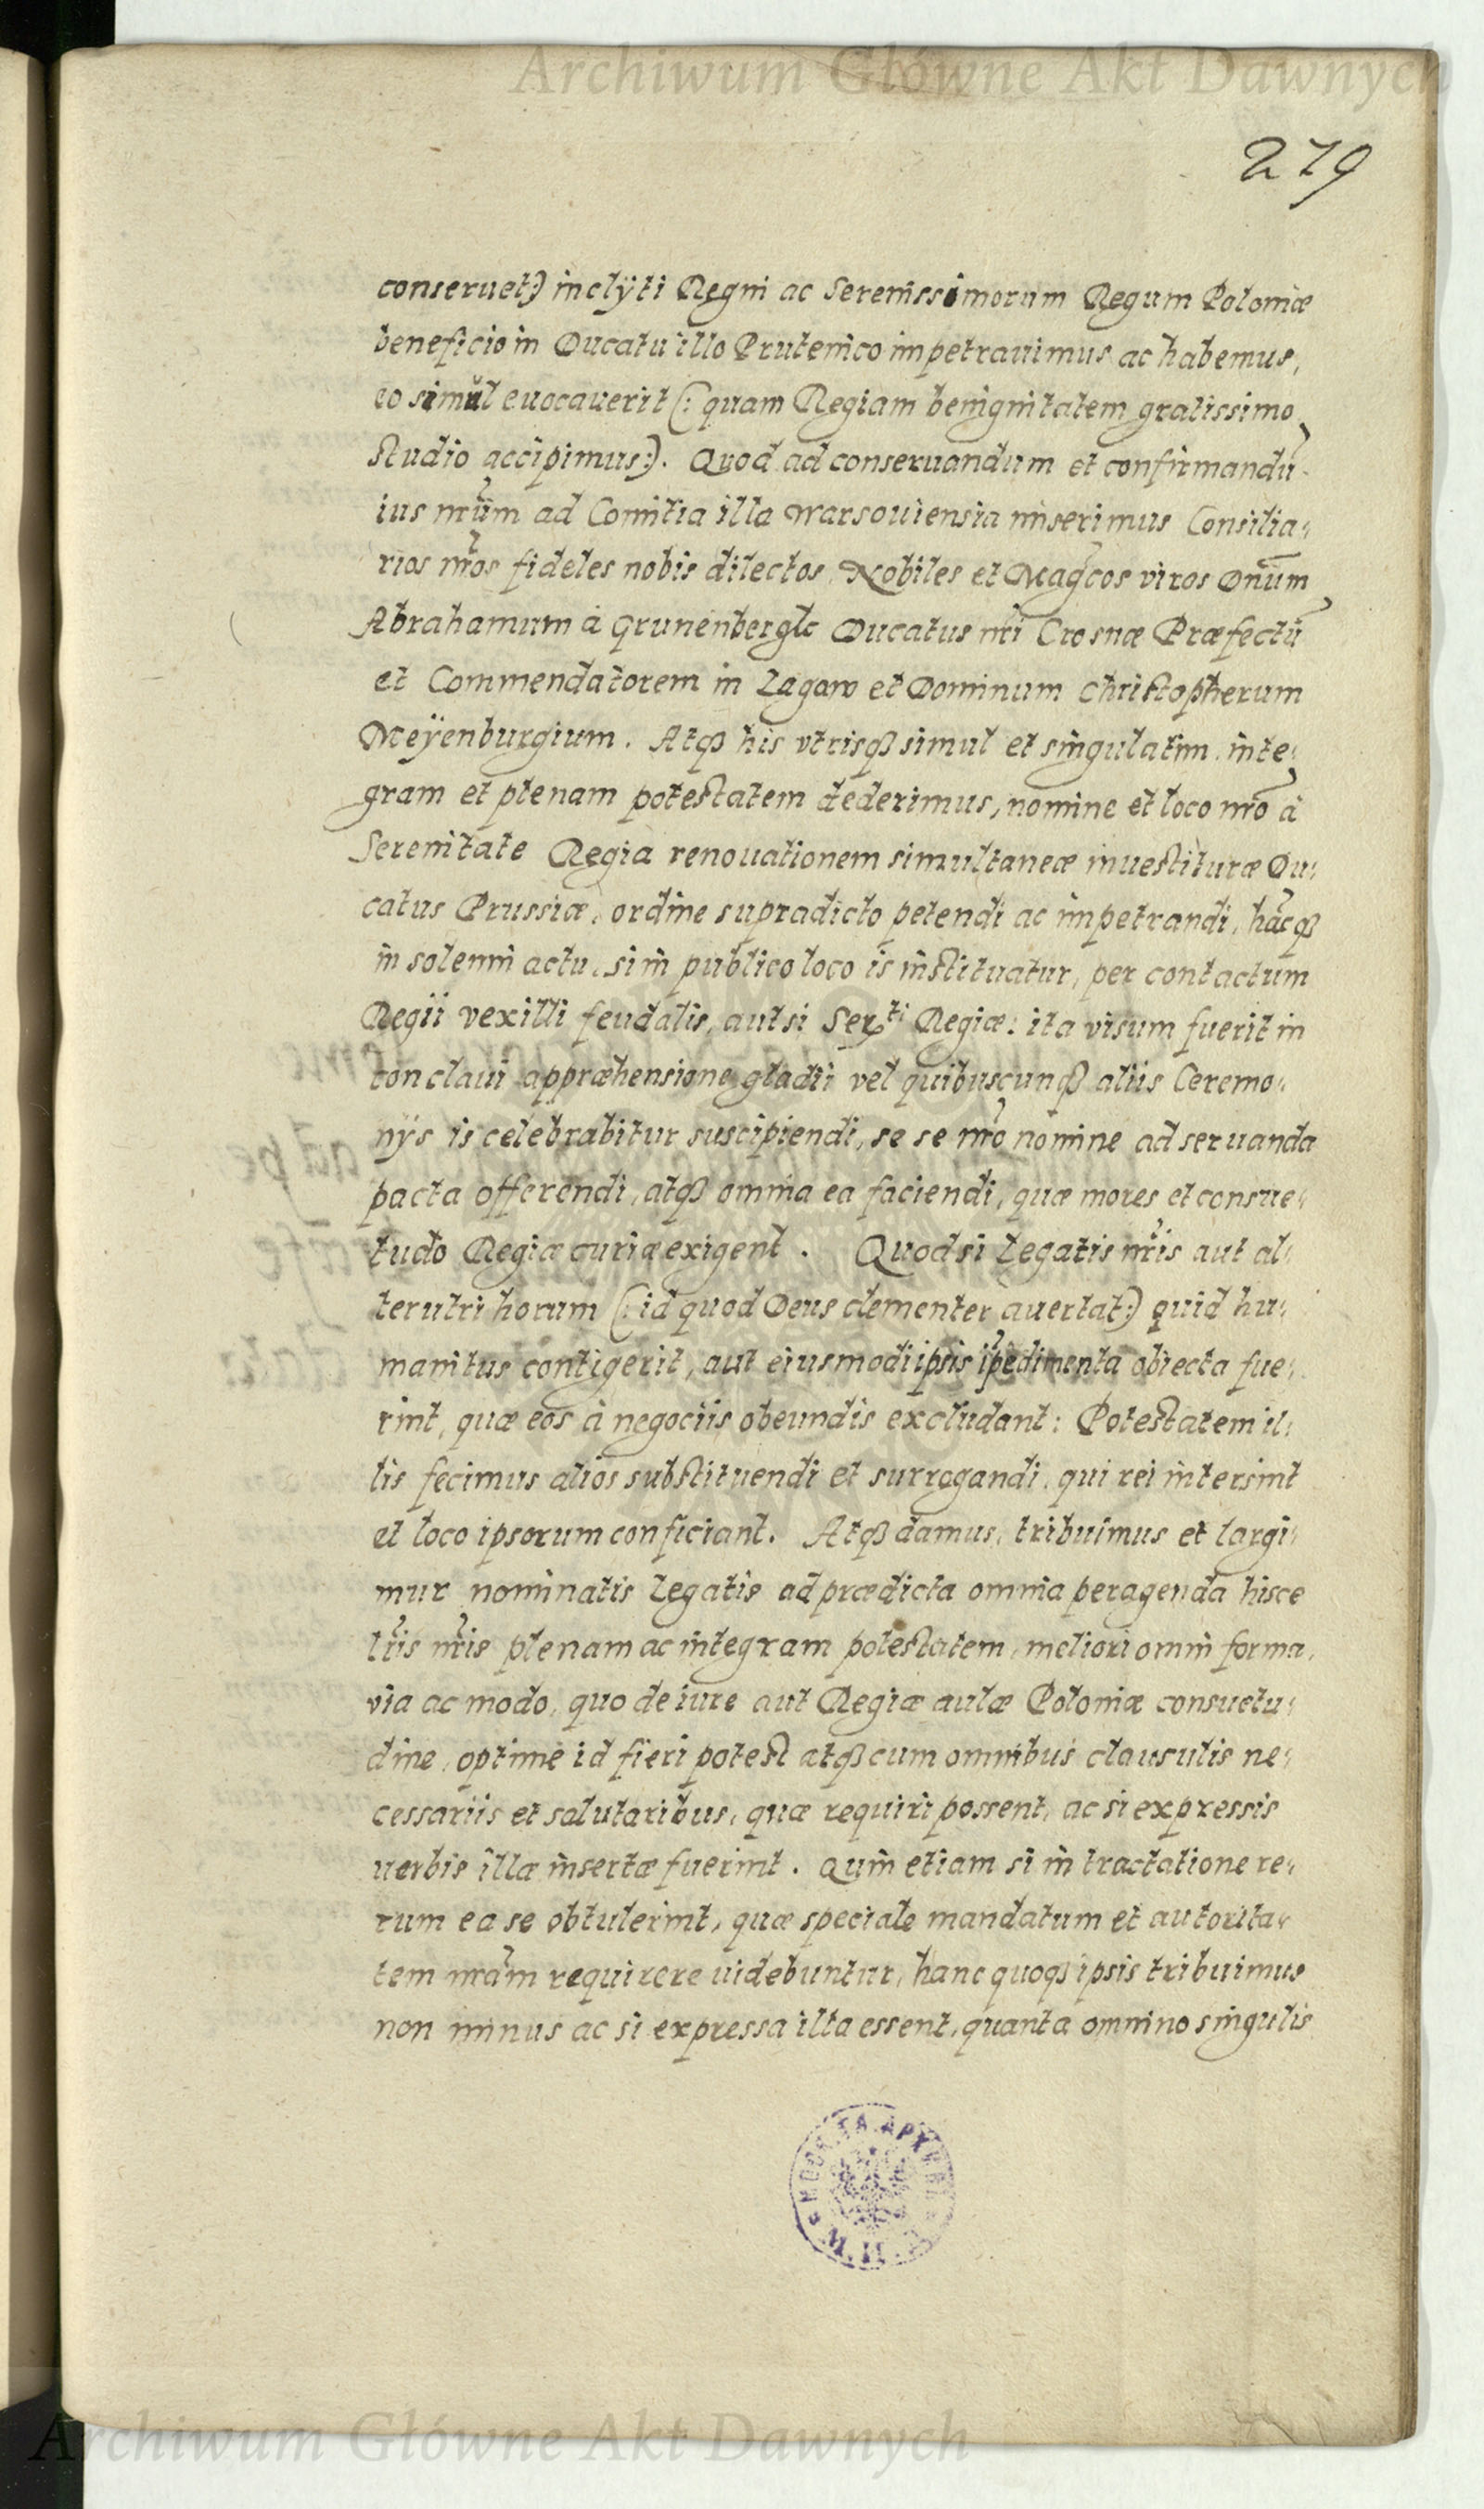 Archiwum Główne Akt Dawnych
279
conseruet:) inclÿti Regni ac Serenissimorum Regum Poloniæ
beneficio in Ducatu illo Prutenico impetrauimus ac habemus,
eo simŭl euocauerit (: quam Regiam benignitatem gratissimo
studio accipimus:). Quod ad conseruandum et confirmandũ
ius nr̃um ad Comitia illa Warsouiensia miserimus Consilia-
rios nr̃os fideles nobis dilectos, Nobiles et Mag̃cos viros Dn̄um
Abrahamum à Grunenbergk Ducatus nr̃i Crosnæ Præfectũ
et Commendatorem in Lagaw et Dominum Christopherum
Meÿenburgium. Atqȝ his vtrisqȝ simul et singulatim, inte-
gram et plenam potestatem dederimus, nomine et loco nr̃o à
Serenitate Regia renouationem simultaneæ inuestituræ Du-
catus Prussiæ, ordine supradicto petendi ac impetrandi, hãcqȝ
in solenni actu, si in publico loco is instituatur, per contactum
Regii vexilli feudalis, aut si Ser.ti Regiæ: ita visum fuerit in
conclaui appræhensione gladii vel quibuscunqȝ aliis Ceremo-
nÿs is celebrabitur suscipiendi, se se nr̃o nomine ad seruanda
pacta offerendi, atqȝ omnia ea faciendi, quæ mores et consue-
tudo Regiæ curiæ exigent. Quod si Legatis nr̃is aut al-
terutri horum (: id quod Deus clementer auertat:) quid hu-
manitus contigerit, aut eiusmodi ipsis ip̃edimenta obiecta fue-
rint, quæ eos à negociis obeundis excludant: Potestatem il-
lis fecimus alios substituendi et surrogandi, qui rei intersint
et loco ipsorum conficiant. Atqȝ damus, tribuimus et largi-
mur nominatis Legatis ad prædicta omnia peragenda hisce
lr̃is nr̃is plenam ac integram potestatem, meliori omni forma,
via ac modo, quo de iure aut Regiæ aulæ Poloniæ consuetu-
dine, optimè id fieri potest atqȝ cum omnibus clausulis ne-
cessariis et salutaribus, quæ requiri possent, ac si expressis
uerbis illæ insertæ fuerint. Quin etiam si in tractatione re-
rum ea se obtulerint, quæ speciale mandatum et autorita-
tem nr̃am requirere uidebuntur, hanc quoqȝ ipsis tribuimus
non minus ac si expressa illa essent, quanta omnino singulis
Archiwum Główne Akt Dawnych